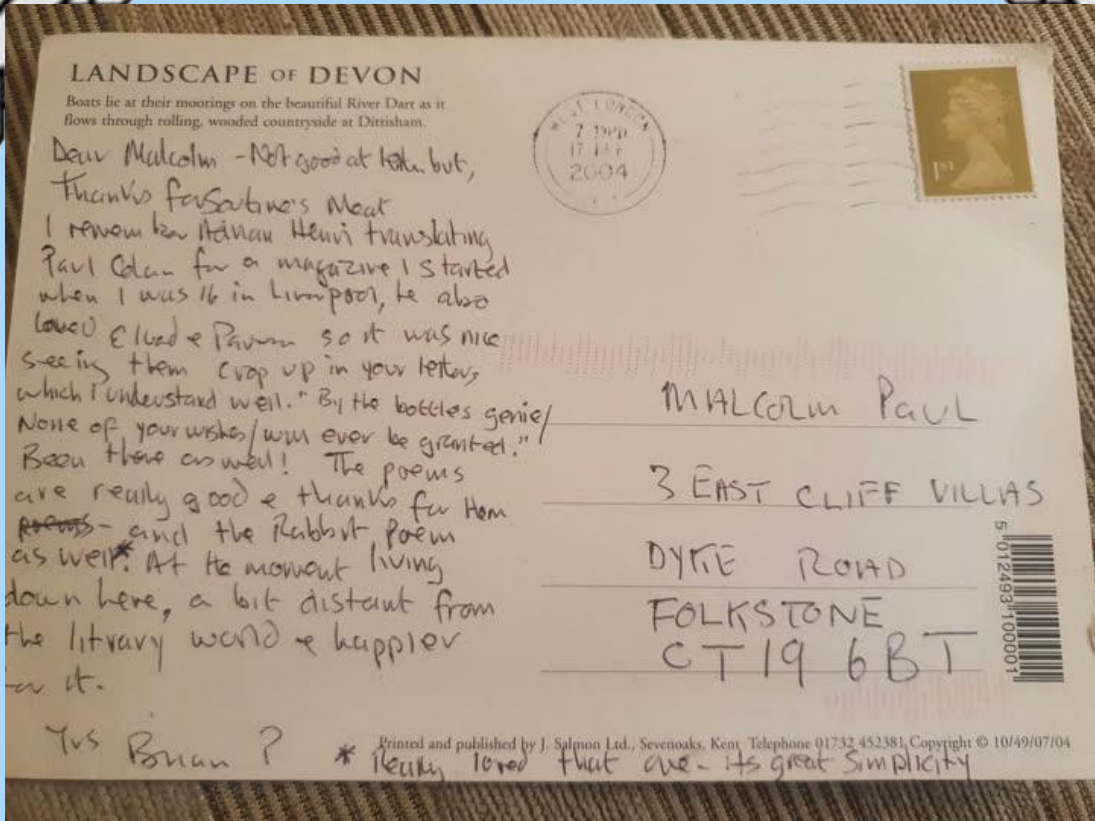 LANDSCAPE OF DEVON
Boats lie at their moorings on the beautiful River Dart as it
flows through rolling, wooded countryside at Dittisham.
WEST LONDON
17
2004
1ST
Dear Malcolm - Not good at but,
Thanks for Soutine's Meat
I remember Adrian Henri translating
Paul Celan for a magazine I started
when I was 16 in Liverpool, he also
loved Eluard & so it was nice
seeing them crop up in your letters,
which I understand well. "By the bottles genie/
None of your wishes/will ever be granted."
Been there as well! The poems
are really good & thanks for them
poems - and the Rabbit Poem
as well*. At the moment living
down here, a bit distant from
the litrary world & happier
it.
Yrs Brian P
* Really loved that one - its great simplicity
MALCOLM PAUL
3 EAST CLIFF VILLAS
DYKE ROAD
FOLKSTONE
CT19 6BT
5 012493 100001
Printed and published by J. Salmon Ltd., Sevenoaks, Kent Telephone 01732 452381 Copyright © 10/49/07/04